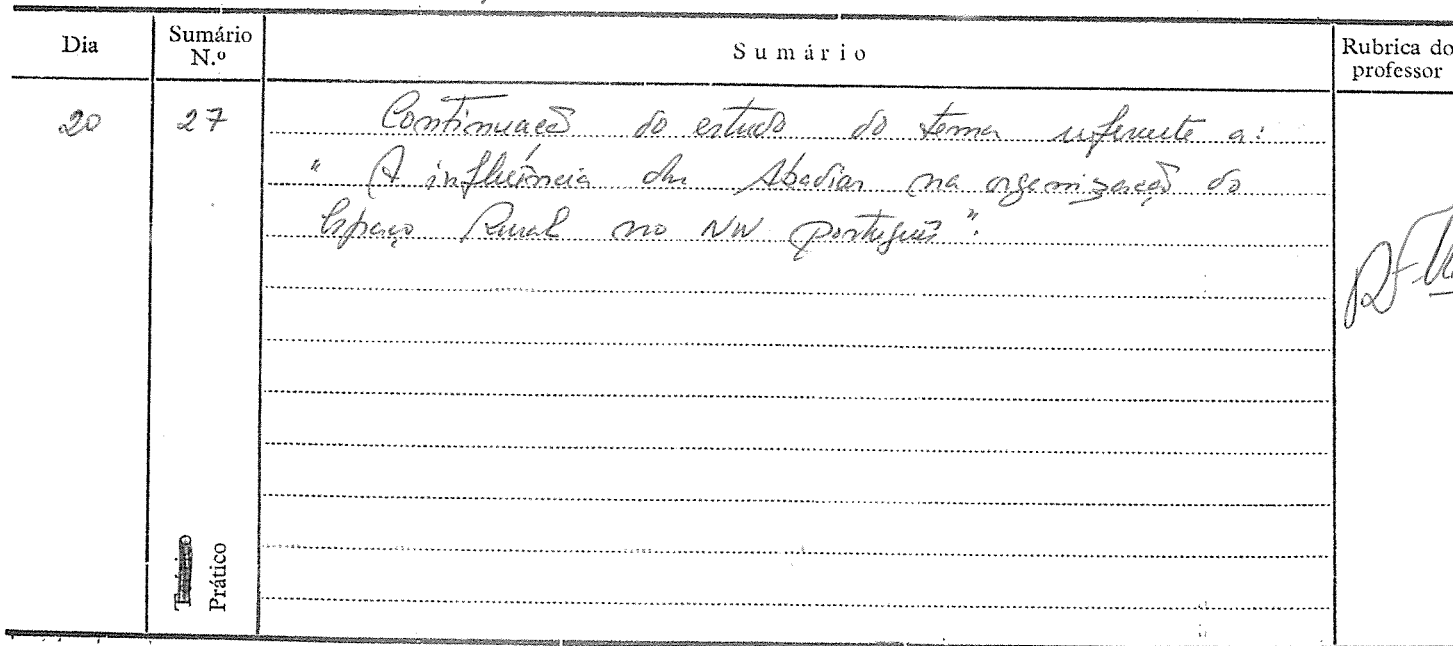 Dia Sumário N.º Sumário Rubrica do professor
20 27 Continuação do estudo do tema referente a:
"A influência das Abadias na organização do
Espaço Rural no NW português".
Teórico
Prático